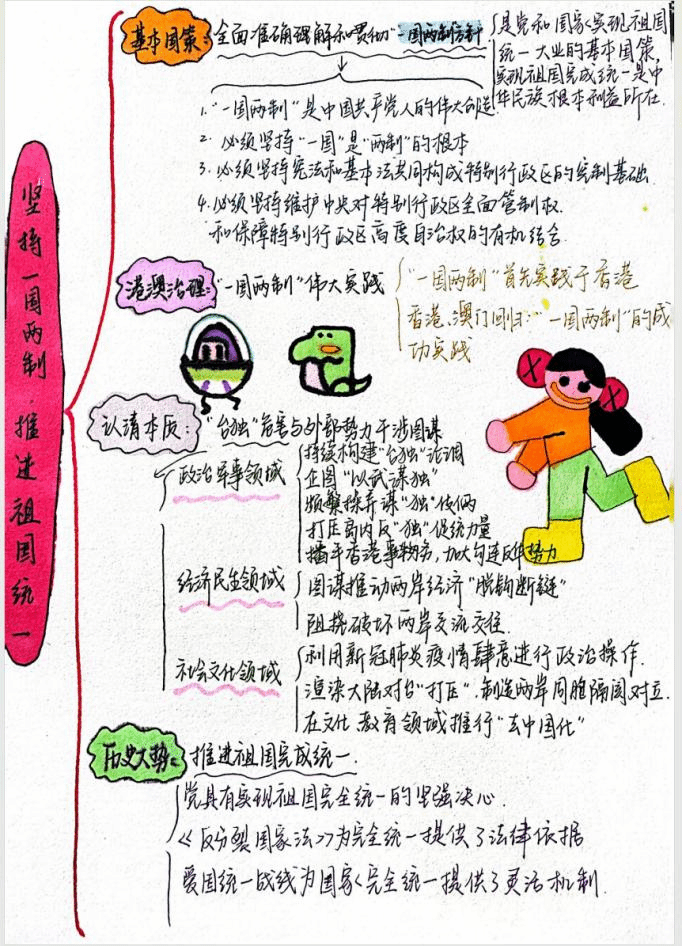 坚持一国两制·推进祖国统一
基本国策: 全面准确理解和贯彻"一国两制"方针
是党和国家实现祖国
统一大业的基本国策,
实现祖国完成统一是中
华民族根本利益所在.
1. "一国两制"是中国共产党人的伟大创造
2. 必须坚持"一国"是"两制"的根本
3. 必须坚持宪法和基本法共同构成特别行政区的宪制基础.
4. 必须坚持维护中央对特别行政区全面管制权.
和保障特别行政区高度自治权的有机结合.
港澳治理: "一国两制"伟大实践
"一国两制"首先实践于香港
香港、澳门回归:"一国两制"的成
功实践
认清本质: "台独"危害与外部势力干涉图谋
政治军事领域
持续构建"台独"论调
企图"以武谋独"
频繁操弄谋"独"伎俩
打压岛内反"独"促统力量
插手香港事物务,加大勾连反华势力
经济民生领域
图谋推动两岸经济"脱钩断链"
阻挠破坏两岸交流交往.
社会文化领域
利用新冠肺炎疫情肆意进行政治操作.
渲染大陆对台"打压".制造两岸同胞隔阂对立.
在文化.教育领域推行"去中国化"
历史大势: 推进祖国完成统一.
党具有实现祖国完全统一的坚强决心.
《反分裂国家法》为完全统一提供了法律依据
爱国统一战线为国家完全统一提供了灵活机制.